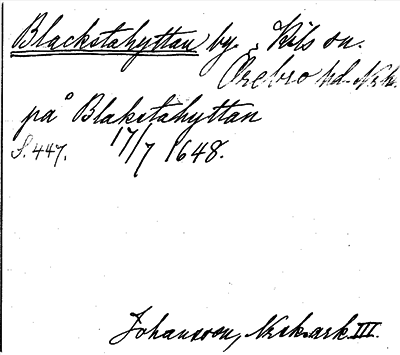 Blackstahyttan by. Kils sn.
Örebro hd. Nrk.
på Blakstahyttan
S. 447. 17/7 1648.
Johansson, Nsk. ark. III.